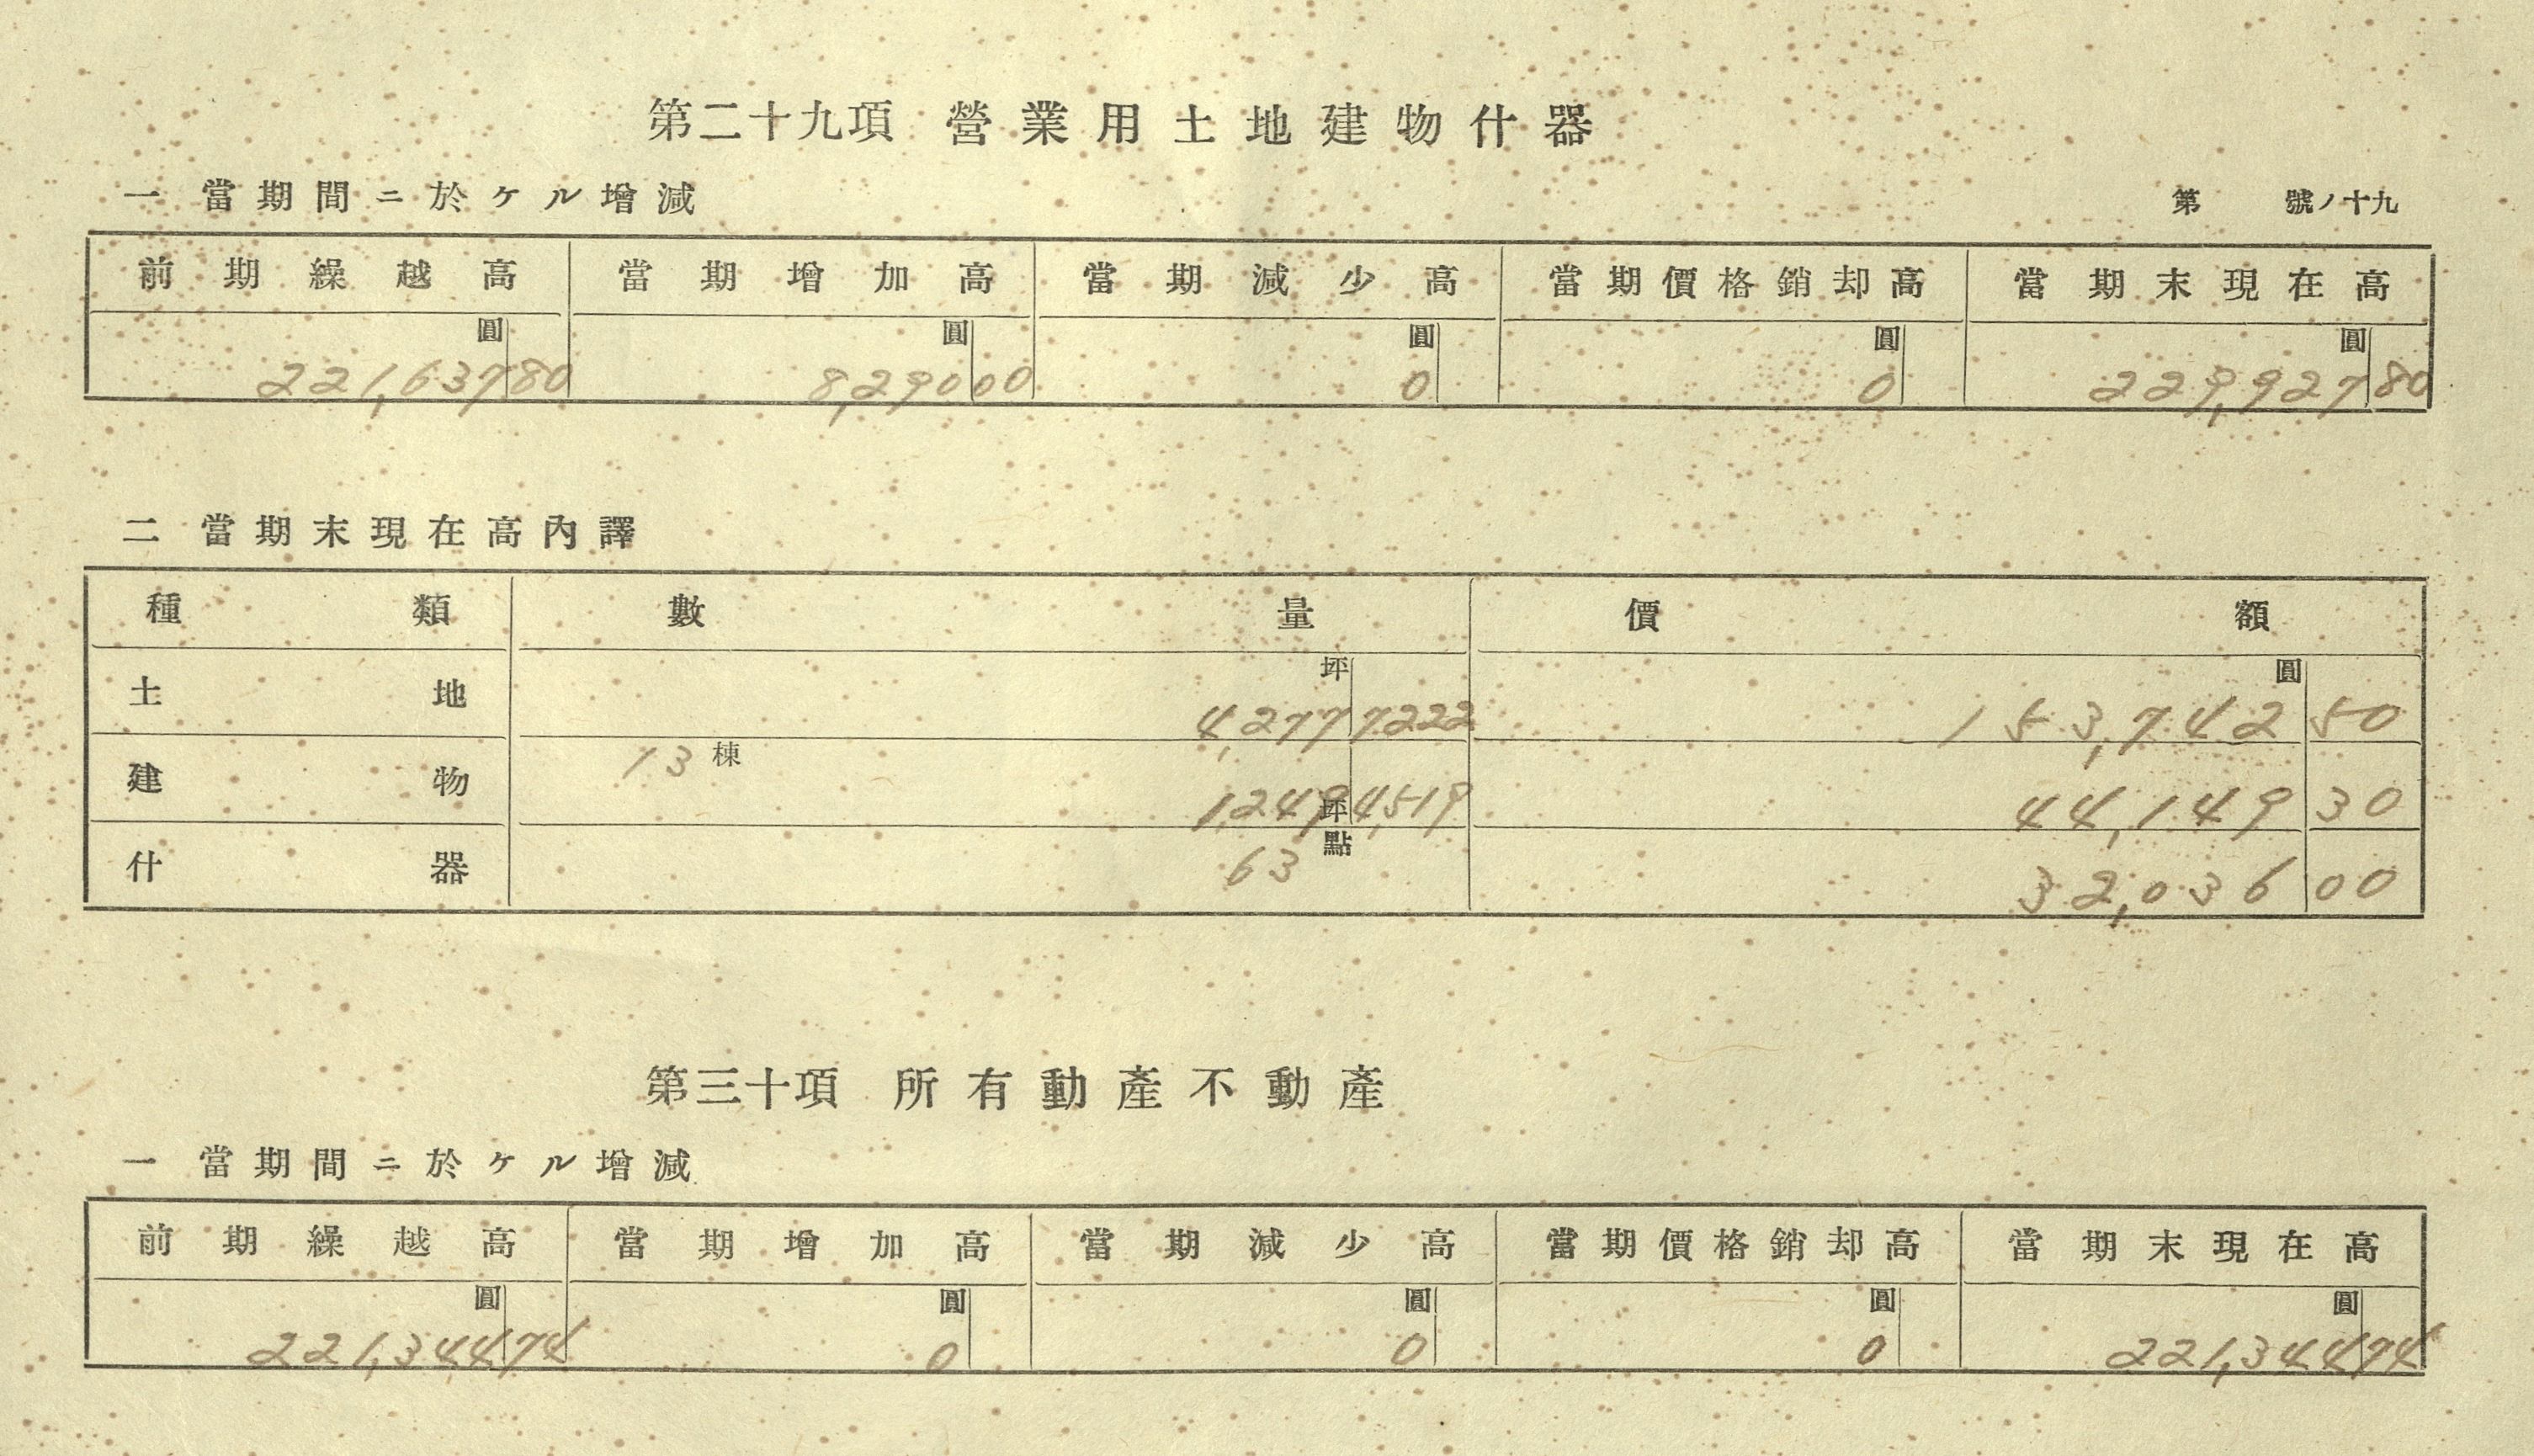 第二十九項 營業用土地建物什器
一 當期間ニ於ケル增減 第 號ノ十九
前期繰越高 當期增加高 當期減少高 當期價格銷却高 當期末現在高
圓 圓 圓 圓 圓
221,637 80 8,290 00 0 0 229,927 80
二 當期末現在高內譯
種類 數量 價額
土地 坪 4,277 7222 圓 153,742 50
建物 13棟 1,249坪 4,519 44,149 30
什器 63點 32,036 00
第三十項 所有動產不動產
一 當期間ニ於ケル增減
前期繰越高 當期增加高 當期減少高 當期價格銷却高 當期末現在高
圓 圓 圓 圓 圓
221,344 74 0 0 0 221,344 74